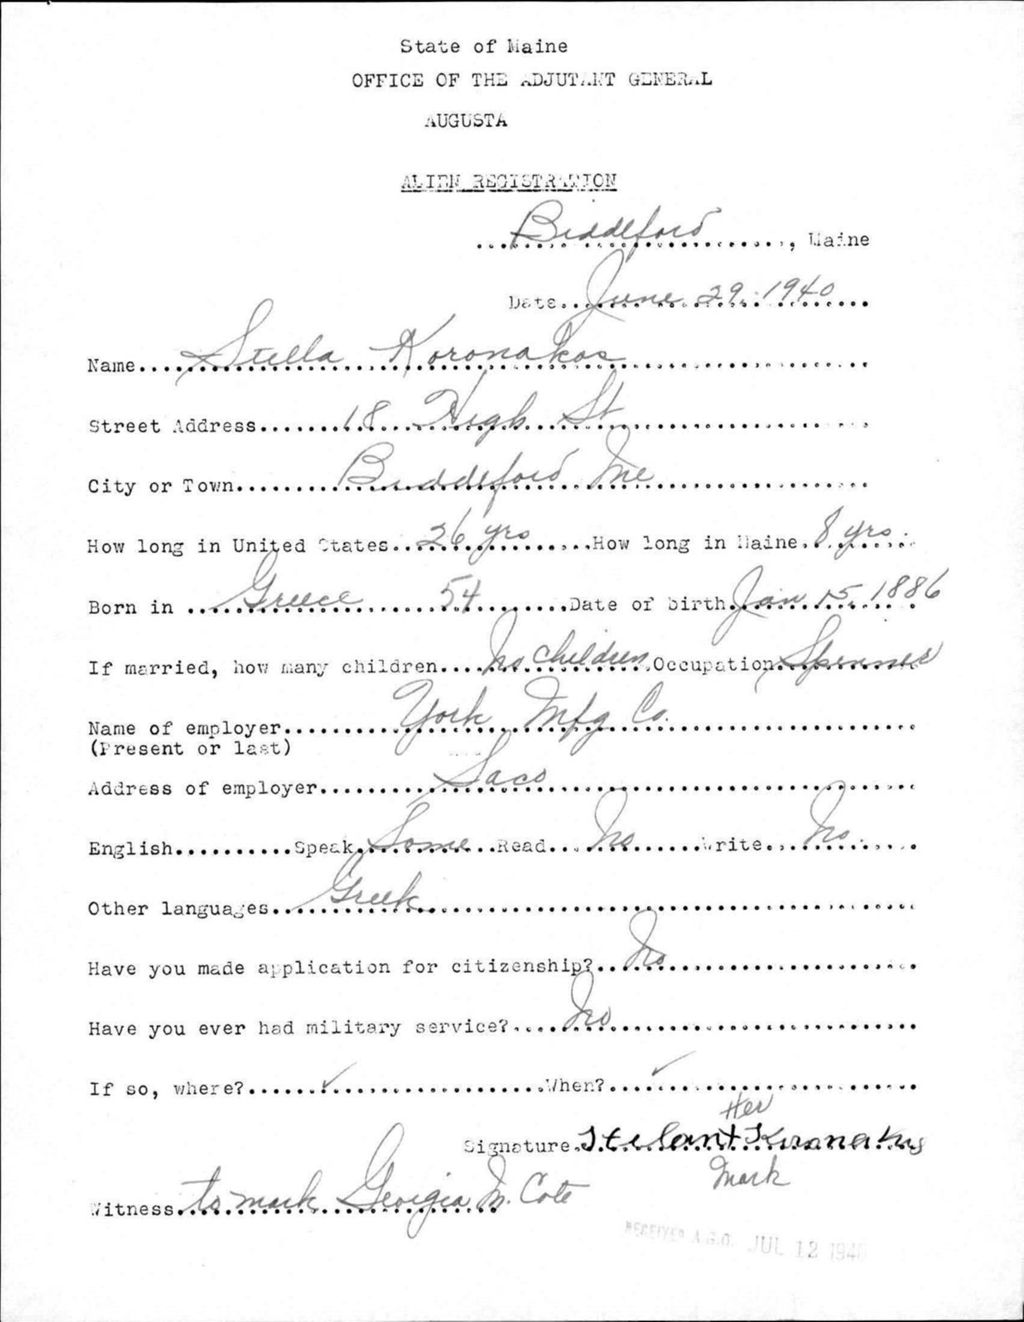 State of Maine
OFFICE OF THE ADJUTANT GENERAL
AUGUSTA
ALIEN REGISTRATION
Biddeford, Maine
Date June 29. 1940
Name Stella Koronakos
Street Address 18 High St
City or Town Biddeford Me
How long in United States 26 yrs How long in Maine 8 yrs.
Born in Greece 54 Date of birth Jan 15. 1886
If married, how many children No children Occupation Spinner
Name of employer York Mfg Co.
(Present or last)
Address of employer Saco
English Speak Some Read No Write No.
Other languages Greek
Have you made application for citizenship? No
Have you ever had military service? No
If so, where? ✓ When? ✓
Her
Signature +
Mark
Witness to mark Georgia M. Cote
RECEIVED A.G.O. JUL 12 1940